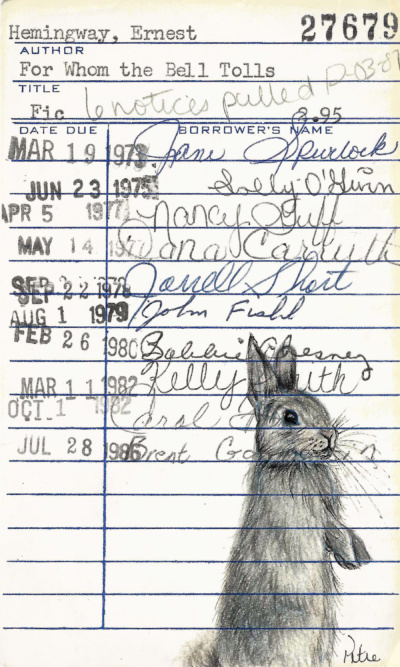 Hemingway, Ernest 27679
AUTHOR
For Whom the Bell Tolls
TITLE
6 notices pulled
Fic 8.95
DATE DUE BORROWER'S NAME
MAR 19 1973 Jane Spurlock
JUN 23 1975 Sally
APR 5 1977 Nancy
MAY 14 Dona
SEP 22 1978 Short
AUG 1 1979 John
FEB 26 1980 Bobbie Chesney
MAR 11 1982 Kelly
OCT. 1 1982 Carol
JUL 28 1986 Brent